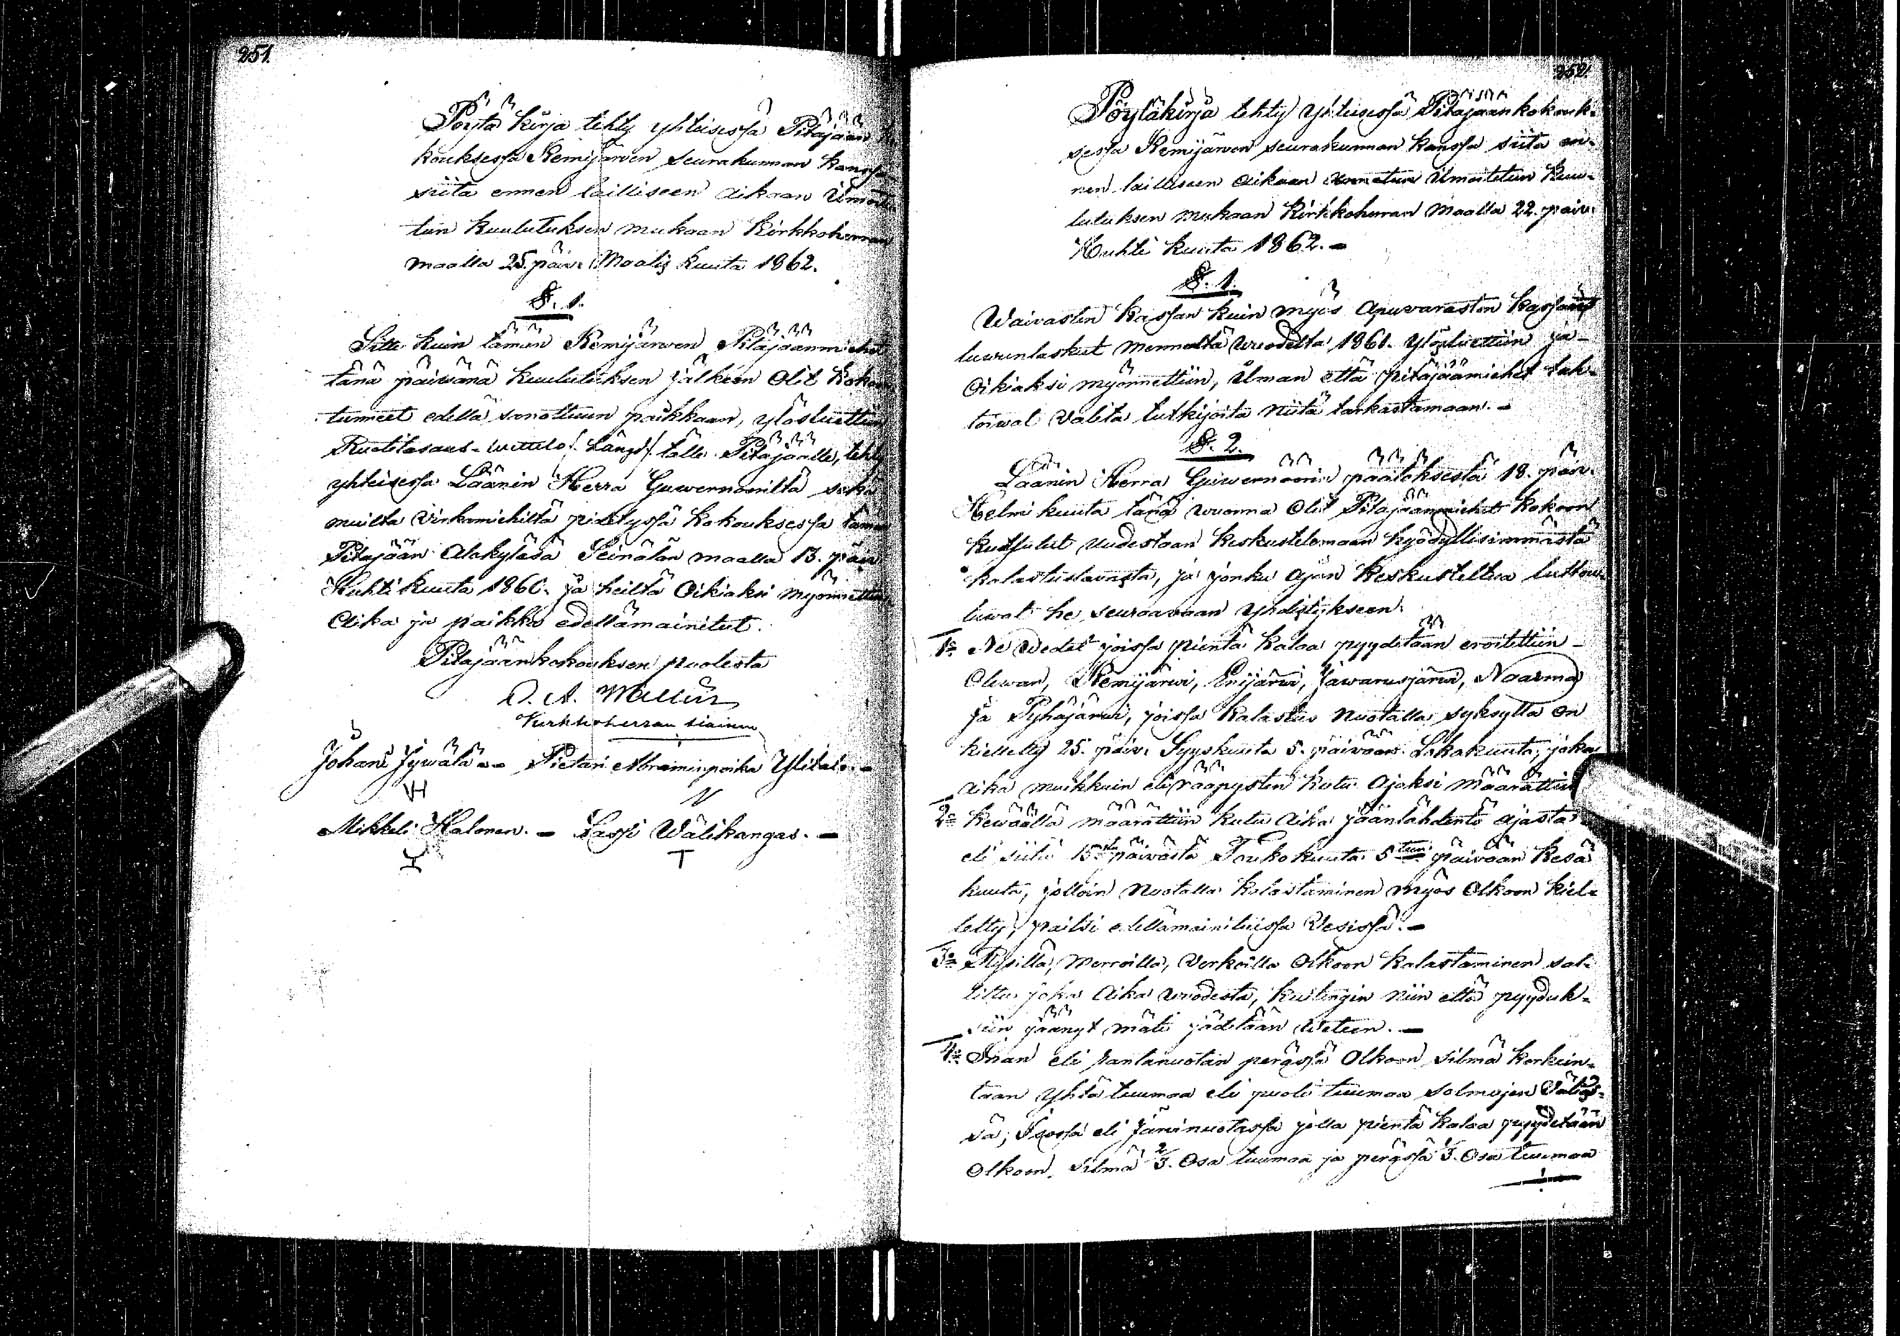 251.
Pöytä kirja tehty yhteisessä Pitäjään ko-
kouksessa Kemijärven seurakunnan kanssa
siitä ennen lailliseen aikaan Ilmoite-
tun kuulutuksen mukaan Kirkkoherran
maalla 25. päiv. Maalis kuuta 1862.
§. 1.
Sitte kuin tämän Kemijärwen Pitäjäänmiehet
tänä päiwänä kuulutuksen jälkeen Olit kokoon
tunneet edellä sanottuun paikkaan, ylösluettiin
Ruotitasaus-luettelo /: Längd :/ tälle Pitäjäälle, tehty
yhteisessä Läänin Herra Guwernöörilta sekä
muilta virkamiehiltä pidetyssä kokouksessa tämän
Pitäjään Alakylässä Seinälän maalla 13. päiv
Huhti kuuta 1860. ja heiltä Oikiaksi myönnettiin,
Aika ja paikka edellämainitut.
Pitäjäänkokouksen puolesta
O. A. Mellin
Kirkkoherran siainen
Johan Jywälä — Pietari Abraminpoika Ylitalo. —
Mikkeli Halonen. — Lassi Wälikangas. —
252.
Pöytäkirja tehty yhteisessä Pitäjäänkokouk-
sessa Kemijärwen seurakunnan kanssa siitä en-
nen lailliseen aikaan Ilmoitetun kuu-
lutuksen mukaan Kirkkoherran maalla 22. päiv.
Huhti kuuta 1862. —
§. 1.
Waivasten kassan kuin myös Apuvaraston kassan
luwunlaskut mennestä wuodesta 1861. ylösluettiin ja
Oikiaksi myönnettiin, ilman että pitäjäämiehet tah-
toiwat valita tutkijoita niitä tarkastamaan. —
§. 2.
Läänin Herra Guwernöörin päätöksestä 18. päiv.
Helmi kuuta tänä wuonna Olit Pitäjäänmiehet kokoon
kutsutut uudestaan keskustelemaan hyödyllisimmästä
kalastustavasta, ja jonku ajan keskusteltua luttou-
tuwat he seuraavaan yhdistykseen.
1o Ne wedet joissa pientä kalaa pyydetään eroitettiin
Olewan, Kemijärwi, Enijärwi, Jawarusjärwi, Noarma
ja Pyhäjärwi, joissa kalastus nuotalla syksyllä on
kielletty 25. päiv. Syyskuuta 5. päivään Lokakuuta, joka
aika muikkuin eli rääpysten kutu ajaksi määrättiin
2o Kewäällä määrättiin kutu aika jäänlähdentö ajasta
eli siitä 15sta päivästä Toukokuuta 5teen päivään Kesä
kuuta, jolloin nuotalla kalastaminen myös Olkoon kiel-
letty, paitsi edellämainituissa Vesissä. —
3o Rysillä, Merroilla, Verkoilla Olkoon kalastaminen sal-
littu joka aika wuodesta, kuitengin niin että pyyduk-
siin jäänyt mäti jädetään weteen. —
4o Inan eli rantanuotan perässä Olkoon silmä korkein-
taan yhtä tuumaa eli puoli tuumaa solmujen Välis-
sä; Isossa eli Järwinuotassa jolla pientä kalaa pyydetään
Olkoon silmä 2/3. Osa tuumaa ja perässä 1/3. Osa tuumaa